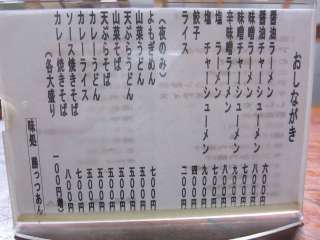 おしながき
醤油ラーメン 六〇〇円
醤油チャーシューメン 八〇〇円
味噌ラーメン 七〇〇円
味噌チャーシューメン 九〇〇円
辛味噌ラーメン
塩 ラーメン 七〇〇円
塩 チャーシューメン 九〇〇円
餃子 四〇〇円
ライス 二〇〇円
(夜のみ)
よもぎめん 七〇〇円
山菜うどん 五〇〇円
天ぷらうどん 五〇〇円
山菜そば 五〇〇円
天ぷらそば 五〇〇円
カレーうどん 五〇〇円
カレーライス 五〇〇円
ソース焼きそば 七〇〇円
カレー焼きそば 七〇〇円
(各大盛り 一〇〇円増)
味処 勝っつあん